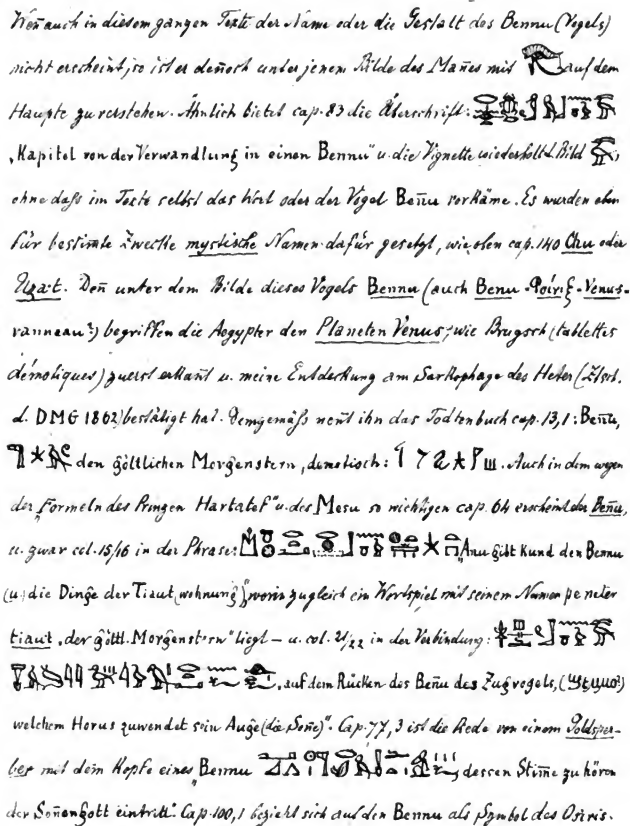 Wen̄ auch in diesem ganzen Texte der Name oder die Gestalt des Bennu (Vogels)
nicht erscheint, so ist er den̄och unter jenem Bilde des Man̄es mit auf dem
Haupte zu verstehen. Ähnlich bietet cap. 83 die Überschrift:
„Kapitel von der Verwandlung in einen Bennu" u. die Vignette wiederholt d. Bild
ohne daſs im Texte selbst das Wort oder der Vogel Ben̄u vorkäme. Es wurden eben
für bestim̄te Zwecke mystische Namen dafür gesetzt, wie oben cap. 140 Chu oder
Uza·t. Den̄ unter dem Bilde dieses Vogels Bennu (auch Benu - Φοίνιξ - Venus-
vanneau?) begriffen die Aegypter den Planeten Venus, wie Brugsch (tablettes
démotiques) zuerst erkan̄t u. meine Entdeckung am Sarkophage des Heter (Ztsch.
d. DMG 1862) bestätigt hat. Demgemäſs nen̄t ihn das Todtenbuch cap. 13,1: Ben̄u,
den göttlichen Morgenstern, demotisch: . Auch in dem wegen
der „Formeln des Prinzen Hartatef" u. des Mesu so wichtigen cap. 64 erscheint der Ben̄u,
u. zwar col. 15/16 in der Phrase: „Anu gibt Kund den Bennu
(u.) die Dinge der Tiaut (wohnung)", worin zugleich ein Wortspiel mit seinem Namen pe neter
tiaut „der göttl. Morgenstern" liegt – u. col. 21/22 in der Verbindung:
, auf dem Rücken des Ben̄u des Zugvogels,
welchem Horus zuwendet sein Auge (die Son̄e)". Cap. 77, 3 ist die Rede von einem Goldsper-
ber mit dem Kopfe eines Bennu , dessen Stim̄e zu hören
der Son̄engott eintritt". Cap. 100,1 bezieht sich auf den Bennu als Symbol des Osiris.